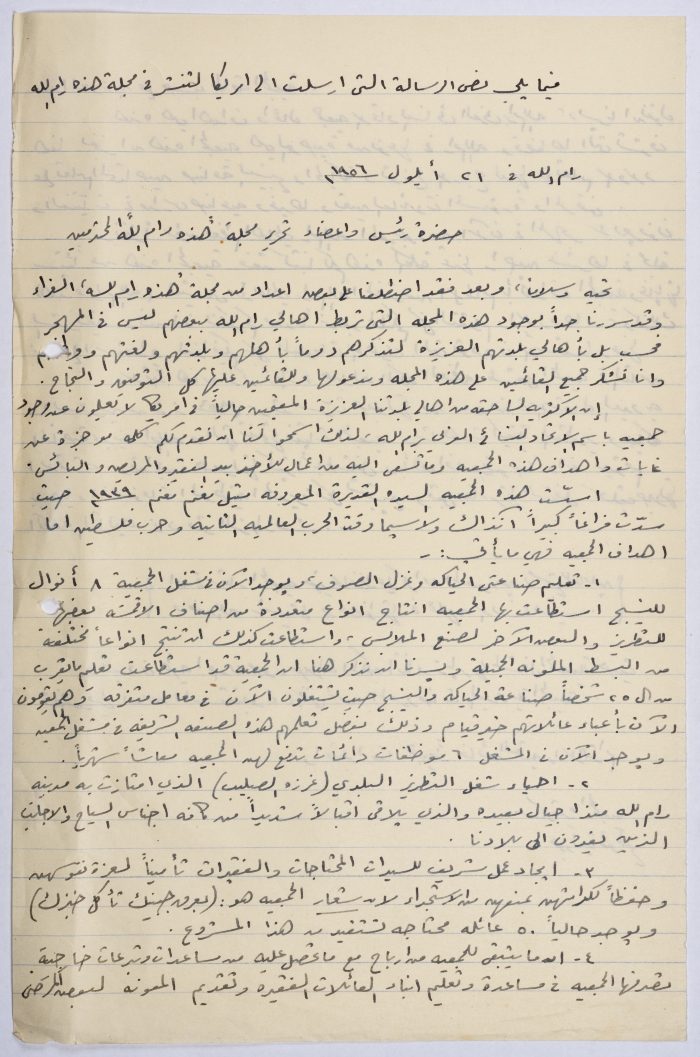 فيما يلي نص الرسالة التي ارسلت الى امريكا لتنشر في مجلة هذه رام الله
رام الله في ٢١ أيلول ١٩٥٦
حضرة رئيس واعضاء تحرير مجلة "هذه رام الله" المحترمين
تحيه وسلاما، وبعد فقد اضطلعنا على بعض اعداد من مجلة "هذه رام الله" الغراء
وقد سررنا جداً بوجود هذه المجله التي تربط اهالي رام الله ببعضهم ليس في المهجر
فحسب بل بأهالي بلدتهم العزيزة لتذكرهم دوماً بأهلهم وبلدتهم ولغتهم
وانا نشكر جميع القائمين على هذه المجله وندعو لها وللقائمين عليها كل التوفيق والنجاح.
إن الأكثريه الساحقه من اهالي بلدتنا العزيزة المقيمين حالياً في امريكا لا يعلمون عن وجود
جمعيه باسم الاتحاد النسائي العربي برام الله، لذلك اسمحوا لنا ان نقدم لكم كلمه موجزة عن
غايات واهداف هذه الجمعيه وما تسعى اليه من اعمال للأخذ بيد الفقير والمريض والبائس.
اسست هذه الجمعيه السيده القديرة المعروفه متيل مغنم مغنم ١٩٣٩ حيث
سدّت فراغاً كبيراً آنذاك ولا سيما وقت الحرب العالميه الثانيه وحرب فلسطين اما
اهداف الجمعيه فهي ما يأتي :-
١- تعليم صناعتي الحياكه وغزل الصوف، ويوجد الآن في مشغل الجمعية ٨ أنوال
للنسيج استطاعت بها الجمعيه انتاج انواع متعددة من اصناف الاقمشه بعضها
للتطريز والبعض الآخر لصنع الملابس، واستطاعت كذلك ان تنتج انواعاً مختلفة
من البسط الملونه الجميلة ويسرنا ان نذكر هنا ان الجمعيه قد استطاعت تعليم ما يقرب
من ال ٢٥ شخصاً صناعة الحياكه والنسيج حيث يشتغلون الآن في معامل متفرقه وهم يقومون
الآن بأعباء عائلاتهم خير قيام وذلك بفضل تعلمهم هذه الصنعه الشريفه في مشغل الجمعيه
ويوجد الآن في المشغل ٦ موظفات دائمات تدفع لهن الجمعيه معاشاً شهرياً.
٢- احياء شغل التطريز البلدي (غرزه الصليب) الذي امتازت به مدينه
رام الله منذ اجيال بعيده والذي يلاقي اقبالاً شديداً من كافه اجناس السياح والاجانب
الذين يفدون الى بلادنا.
٣- ايجاد عمل شريف للسيدات المحتاجات والفقيرات تأميناً لعزة نفوسهن
وحفظاً لكرامتهن نمنعهن من الاستجداء لان شعار الجمعيه هو: (بعرق جبينك تأكل خبزك)
ويوجد حالياً ٥٠ عائله محتاجه تستفيد من هذا المشروع.
٤- ان ما يتبقى للجمعيه من ارباح مع ما تحصل عليه من مساعدات وتبرعات خارجية
تصرفها الجمعيه في مساعدة وتعليم ابناء العائلات الفقيره وتقديم المعونة لبعض المرضى